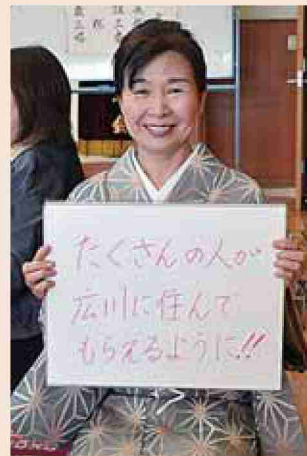 たくさんの人が
広川に住んで
もらえるように!!